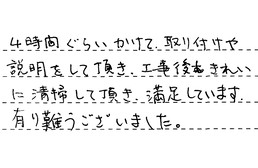 4時間ぐらいかけて、取り付けや
説明をして頂き、工事後もきれい
に清掃して頂き、満足しています。
有り難うございました。